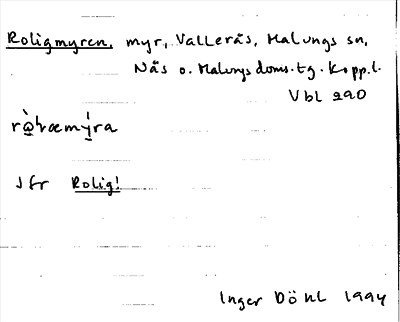 Roligmyren, myr, Vallerås, Malungs sn,
Nås o. Malungs doms. tg. Kopp. l.
Vbl 290
Jfr Rolig!
Inger Döhl 1994